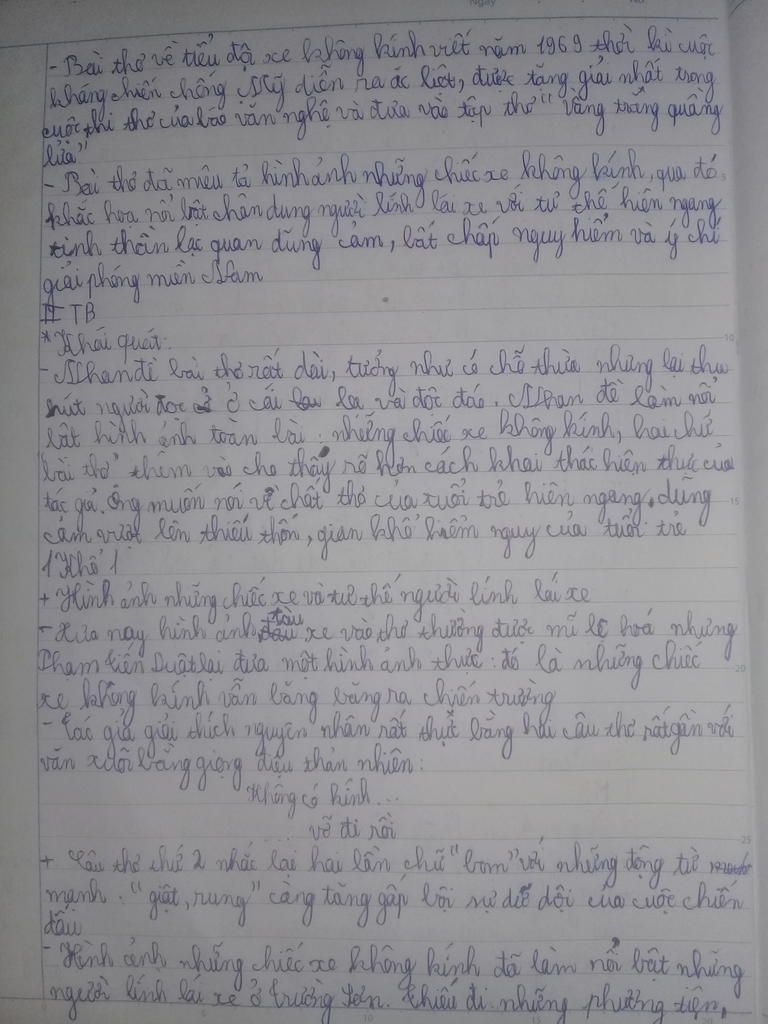 - Bài thơ về tiểu đội xe không kính viết năm 1969 thời kì cuộc
kháng chiến chống Mỹ diễn ra ác liệt, được tặng giải nhất trong
cuộc thi thơ của báo văn nghệ và đưa vào tập thơ "vầng trăng quầng
lửa"
- Bài thơ đã miêu tả hình ảnh những chiếc xe không kính, qua đó
khắc hoạ nổi bật chân dung người lính lái xe với tư thế hiên ngang
tinh thần lạc quan dũng cảm, bất chấp nguy hiểm và ý chí
giải phóng miền Nam
II TB
* Khái quát:
- Nhan đề bài thơ rất dài, tưởng như có chỗ thừa nhưng lại thu
hút người đọc ở cái lạ và độc đáo. Nhan đề làm nổi
bật hình ảnh toàn bài: những chiếc xe không kính, hai chữ
"bài thơ" thêm vào cho thấy rõ hơn cách khai thác hiện thực của
tác giả. Ông muốn nói về chất thơ của tuổi trẻ hiên ngang, dũng
cảm vượt lên thiếu thốn, gian khổ hiểm nguy của tuổi trẻ
1 Khổ 1
+ Hình ảnh những chiếc xe và tư thế người lính lái xe
- Xưa nay hình ảnh tàu xe vào thơ thường được mĩ lệ hoá nhưng
Phạm Tiến Duật lại đưa một hình ảnh thực: đó là những chiếc
xe không kính vẫn băng băng ra chiến trường
- Tác giả giải thích nguyên nhân rất thật bằng hai câu thơ rất gần với
văn xuôi bằng giọng điệu thản nhiên:
Không có kính...
vỡ đi rồi
+ Câu thơ thứ 2 nhắc lại hai lần chữ "bom" với những động từ
mạnh. "giật, rung" càng tăng gấp bội sự dữ dội của cuộc chiến
đấu
- Hình ảnh những chiếc xe không kính đã làm nổi bật những
người lính lái xe ở Trường Sơn. Thiếu đi những phương tiện,